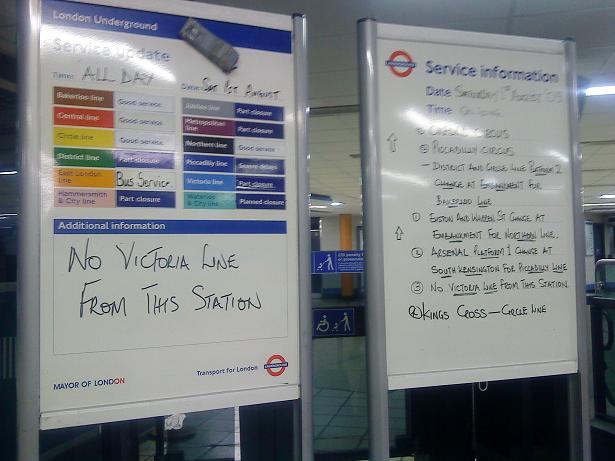 London Underground
Service update
Time: ALL DAY
Date: SAT 1ST AUGUST
Bakerloo line Good service
Central line Good service
Circle line Good service
District line Part closure
East London line Bus Service
Hammersmith & City line Part closure
Jubilee line Part closure
Metropolitan line Part closure
Northern line Good service
Piccadilly line Severe delays
Victoria line Part closure
Waterloo & City line Planned closure
Additional information
NO VICTORIA LINE
FROM THIS STATION
MAYOR OF LONDON
Transport for London
UNDERGROUND
UNDERGROUND
Service information
Date SATURDAY 1ST AUGUST
Time
CIRCUS
PICCADILLY CIRCUS
- DISTRICT AND CIRCLE LINE PLATFORM 2
CHANGE AT EMBANKMENT FOR
BAKERLOO LINE
① EUSTON AND WARREN ST CHANGE AT
EMBANKMENT FOR NORTHERN LINE.
② ARSENAL PLATFORM 1 CHANGE AT
SOUTH KENSINGTON FOR PICCADILLY LINE
③ NO VICTORIA LINE FROM THIS STATION.
KINGS CROSS — CIRCLE LINE